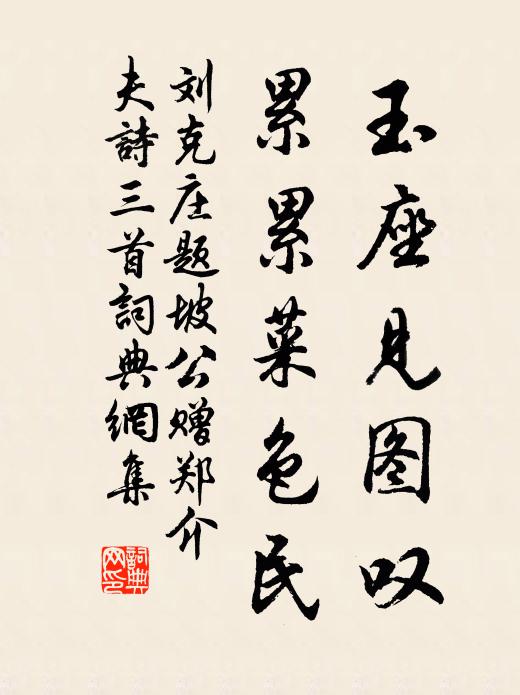 玉座见图叹
累累菜色民
刘克庄题坡公赠郑介
夫詩三首詞典網集
詞典
网印